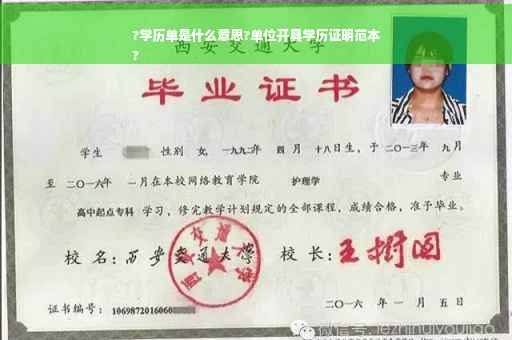 ?学历单是什么意思?单位开具学历证明范本
?
西安交通大学
毕业证书
学生 性别 女, 一九九二年 四月 十八日生,于二〇一三年 九月
至 二〇一六年 一月在本校网络教育学院 护理学 专业
高中起点专科 学习,修完教学计划规定的全部课程,成绩合格,准予毕业。
校名:西安交通大学 校长:王树国
西安交通大学
证书编号: 1069872016060
二〇一六 年 一 月 五 日
微信号: jezhihuiyoujiao